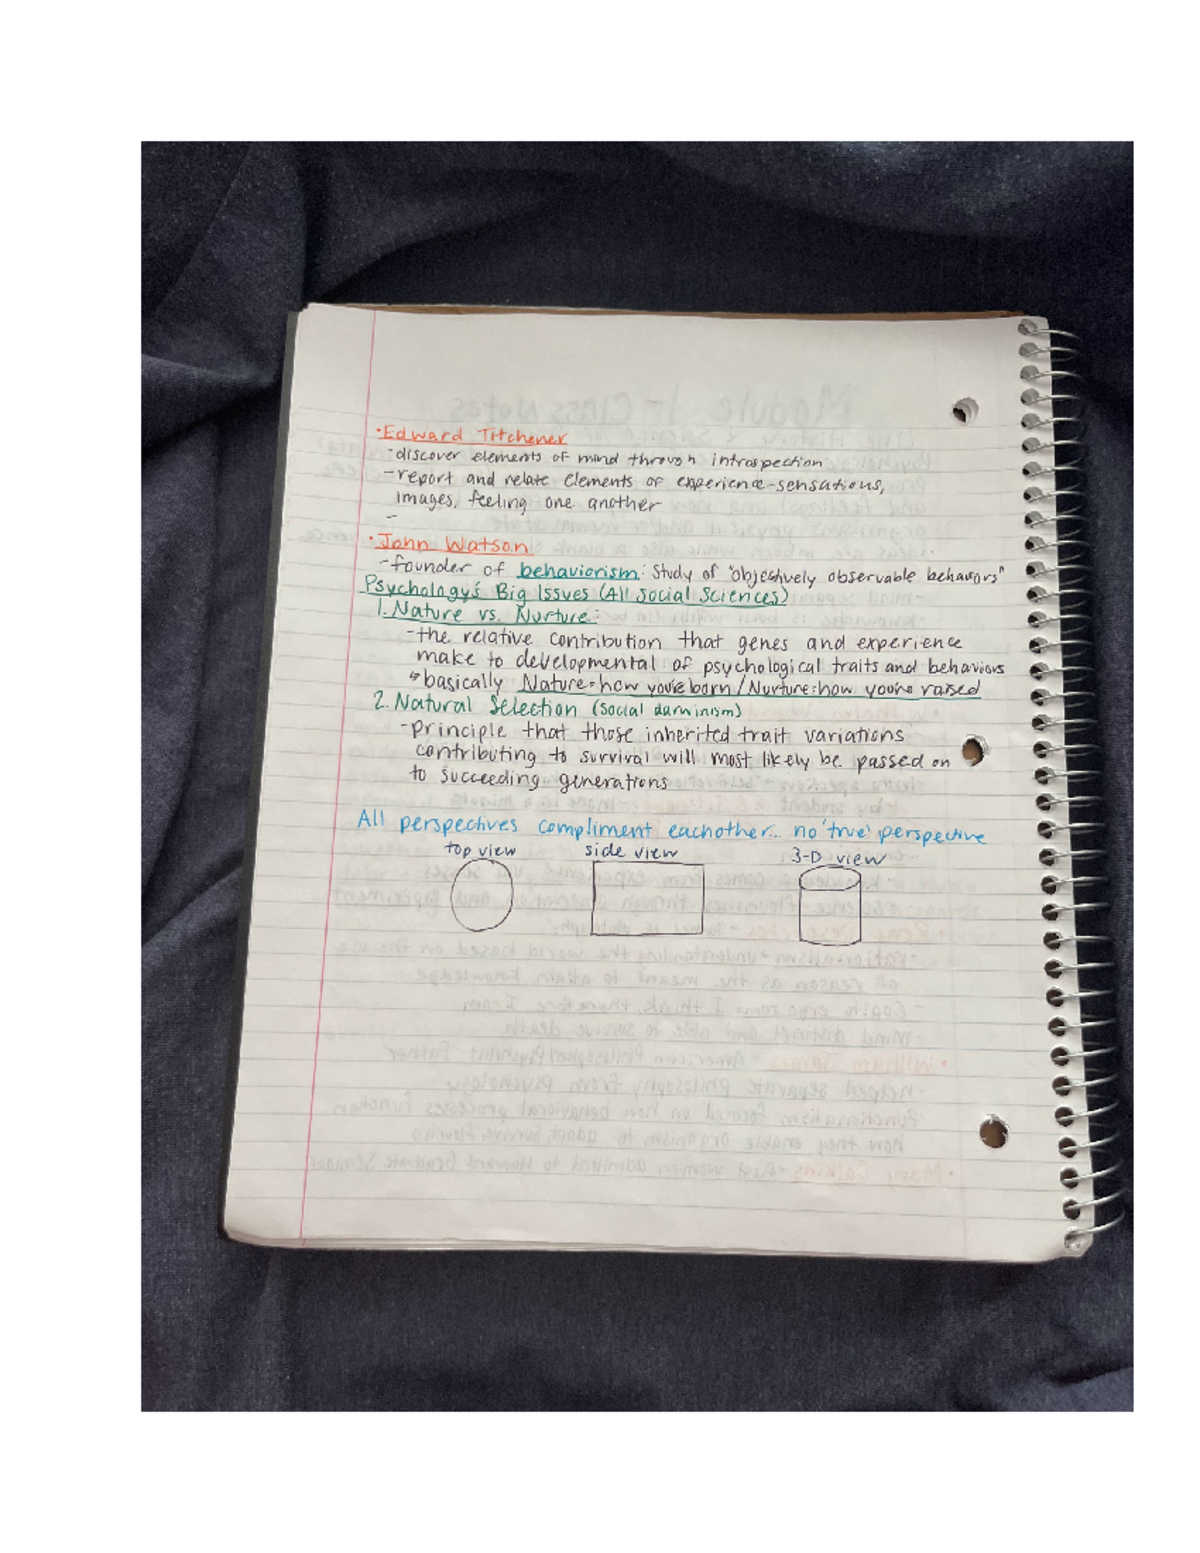 •Edward Titchener
-discover elements of mind through introspection
-report and relate elements of experience-sensations,
images, feeling one another
-
•John Watson
-founder of behaviorism: study of "objectively observable behaviors"
Psychology's Big Issues (All Social Sciences)
1. Nature vs. Nurture:
-the relative contribution that genes and experience
make to developmental of psychological traits and behaviors
↳basically Nature=how you're born/Nurture=how you're raised
2. Natural Selection (Social darwinism)
-principle that those inherited trait variations
contributing to survival will most likely be passed on
to succeeding generations
All perspectives compliment eachother... no 'true' perspective
top view side view 3-D view